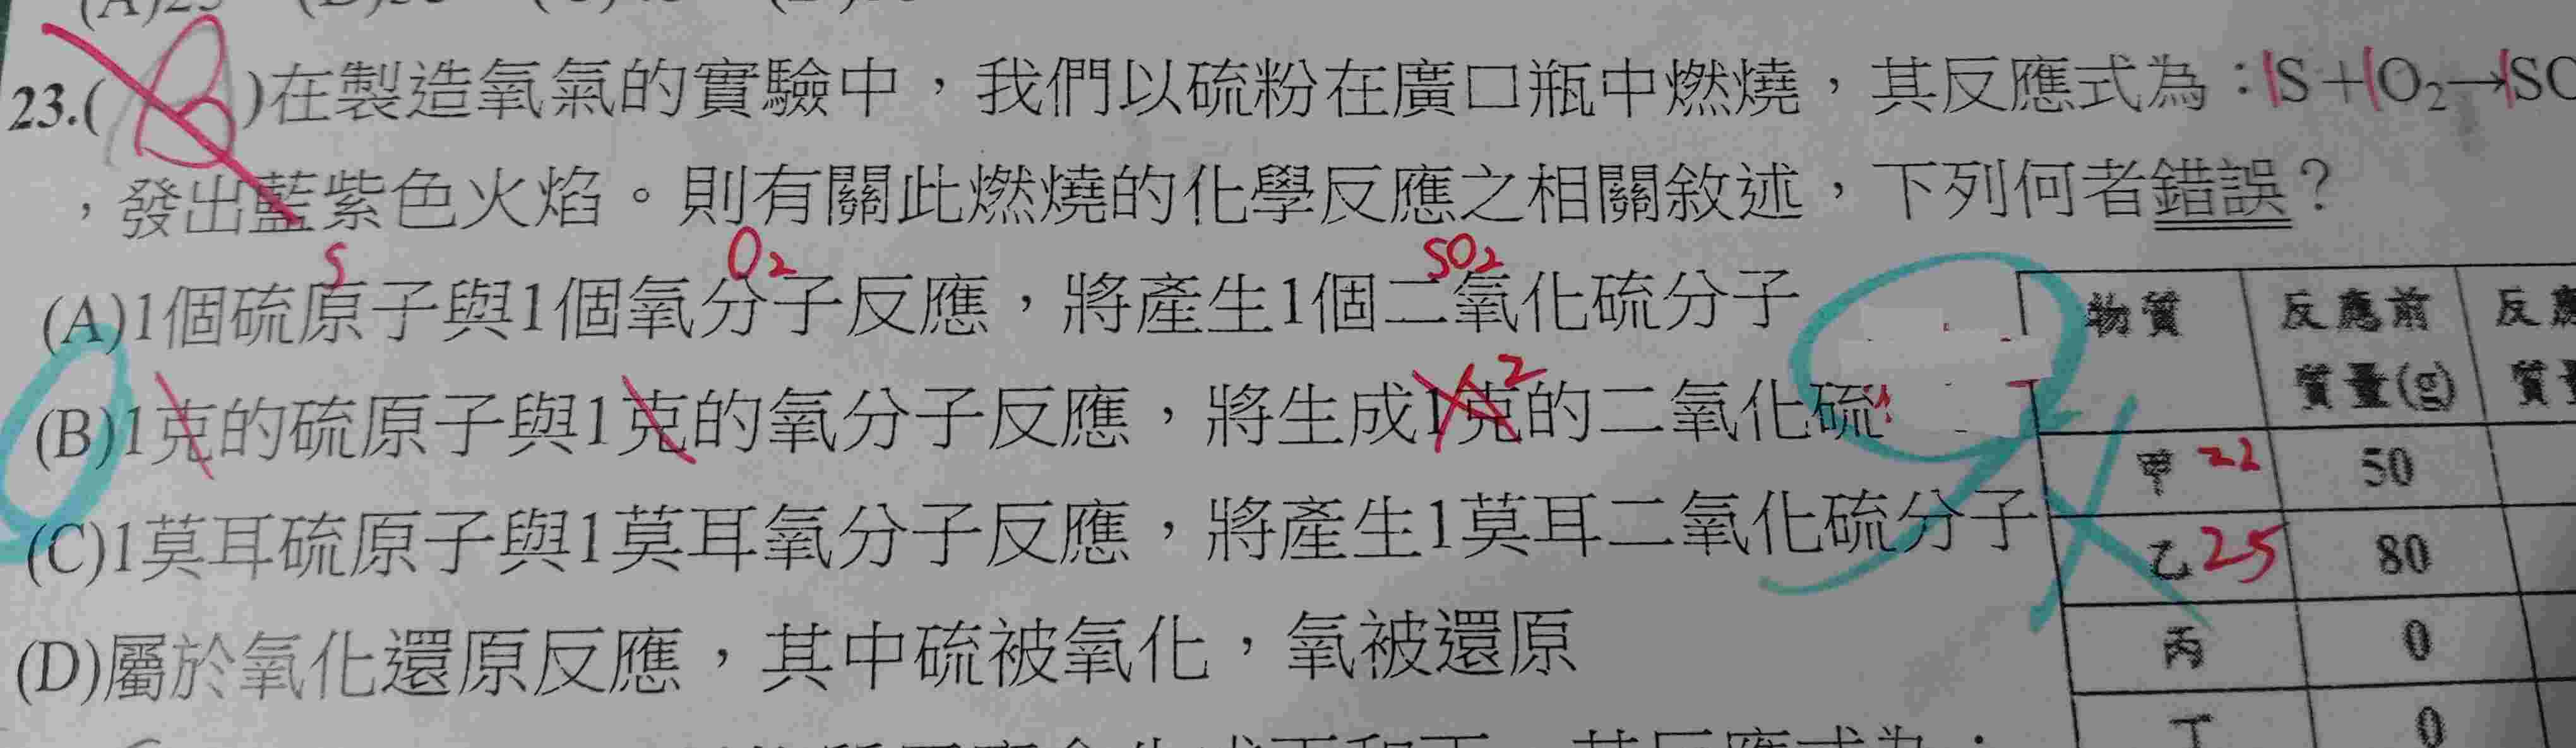 23.( B )在製造氧氣的實驗中，我們以硫粉在廣口瓶中燃燒，其反應式為：1S+1O₂→1SO
，發出藍紫色火焰。則有關此燃燒的化學反應之相關敘述，下列何者錯誤？
S O₂ SO₂
(A)1個硫原子與1個氧分子反應，將產生1個二氧化硫分子
2
(B)1克的硫原子與1克的氧分子反應，將生成1克的二氧化硫
(C)1莫耳硫原子與1莫耳氧分子反應，將產生1莫耳二氧化硫分子
(D)屬於氧化還原反應，其中硫被氧化，氧被還原
物質 反應前 反應
質量(g) 質量
甲 22 50
乙 25 80
丙 0
丁 0